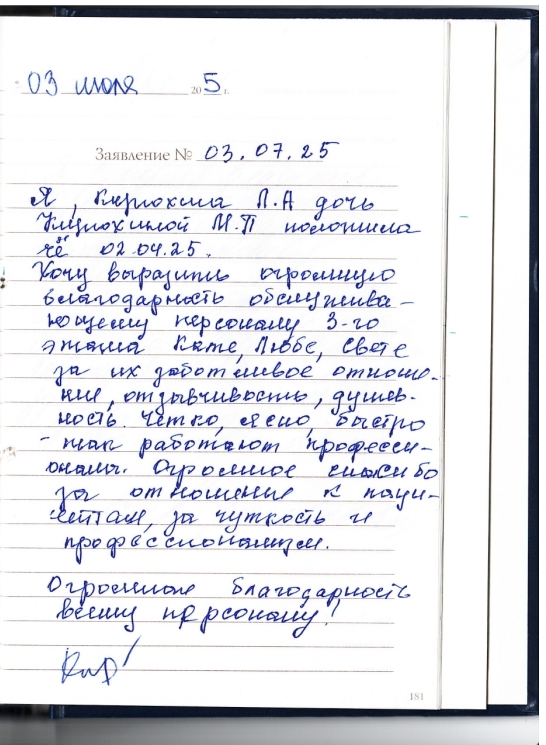 03 июля 205 г.
Заявление № 03.07.25
Я, Кирюхина Л.А дочь
Кирюхиной М.П положила
её 02.07.25.
Хочу выразить огромную
благодарность обслужива-
ющему персоналу 3-го
этажа Кате, Любе, Свете
за их заботливое отноше-
ние, отзывчивость, душев-
ность. Чётко, ясно, быстро
- так работают професси-
оналы. Огромное спасибо
за отношение к паци-
ентам, за чуткость и
профессионализм.
Огромная благодарность
всему персоналу!
181